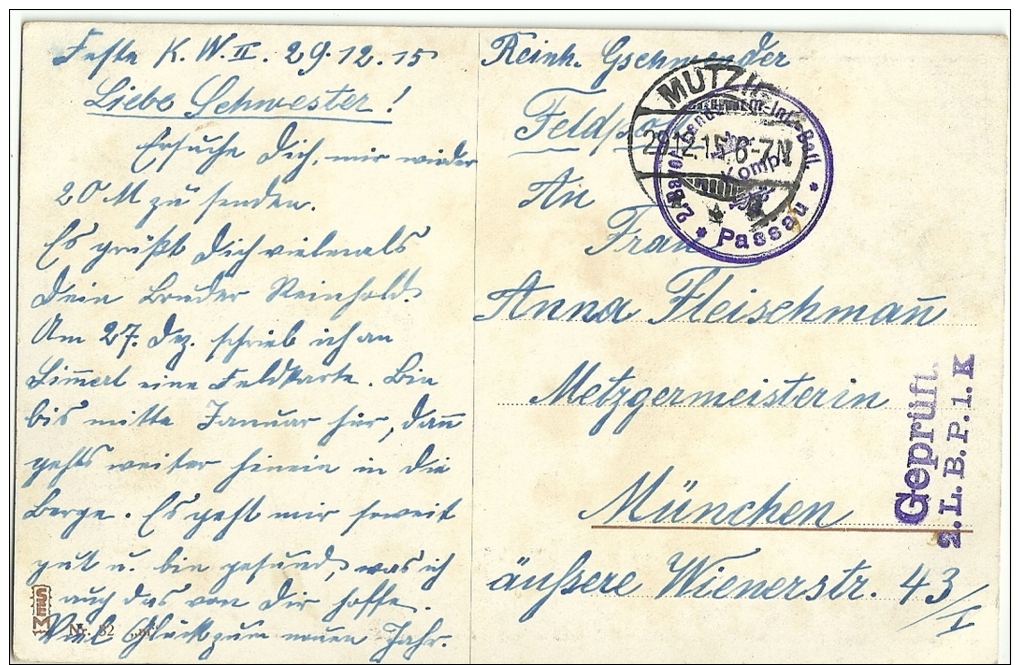 Feste K. W. II. 29.12.15
Liebe Schwester!
Ersuche Dich, mir wieder
20 M zu senden.
Es grüßt Dich vielmals
Dein Bruder Reinhold
Am 27. Dez. schrieb ich an
eine Feldkarte. Bin
bis mitte Januar hier, dann
gehts weiter hinein in die
Berge. Es geht mir soweit
gut u. bin gesund, was ich
auch das von Dir hoffe.
Viel Glück zum neuen Jahr.
SEMI
Nr. 62
Reinh. Gschwender
Feldpost
An
Frau
Anna Fleischmañ
Metzgermeisterin
München
äußere Wienerstr. 43/I
MUTZIG
29.12.15.6-7N
Komp.
* Passau *
Geprüft.
2. L. B. P. 1. K